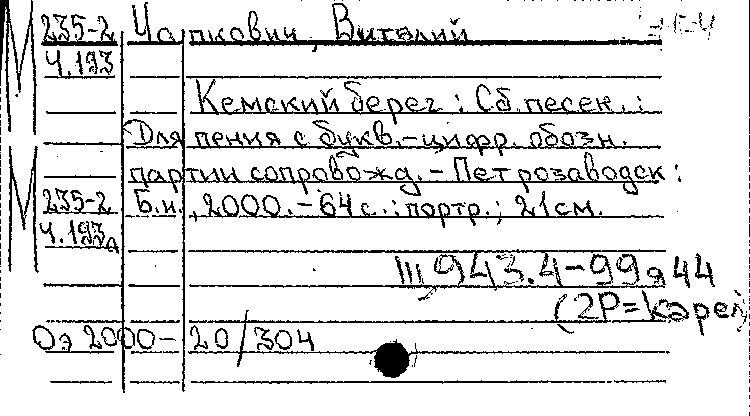 235-2 Чапкович, Виталий
Ч.193
Кемский берег : Сб. песен. :
Для пения с букв.-цифр. обозн.
партии сопровожд. - Петрозаводск :
235-2 Б.и., 2000. - 64 с. : портр. ; 21 см.
Ч.193а
Щ943.4-99я44
(2Р=Карел)
Оэ 2000-20/304